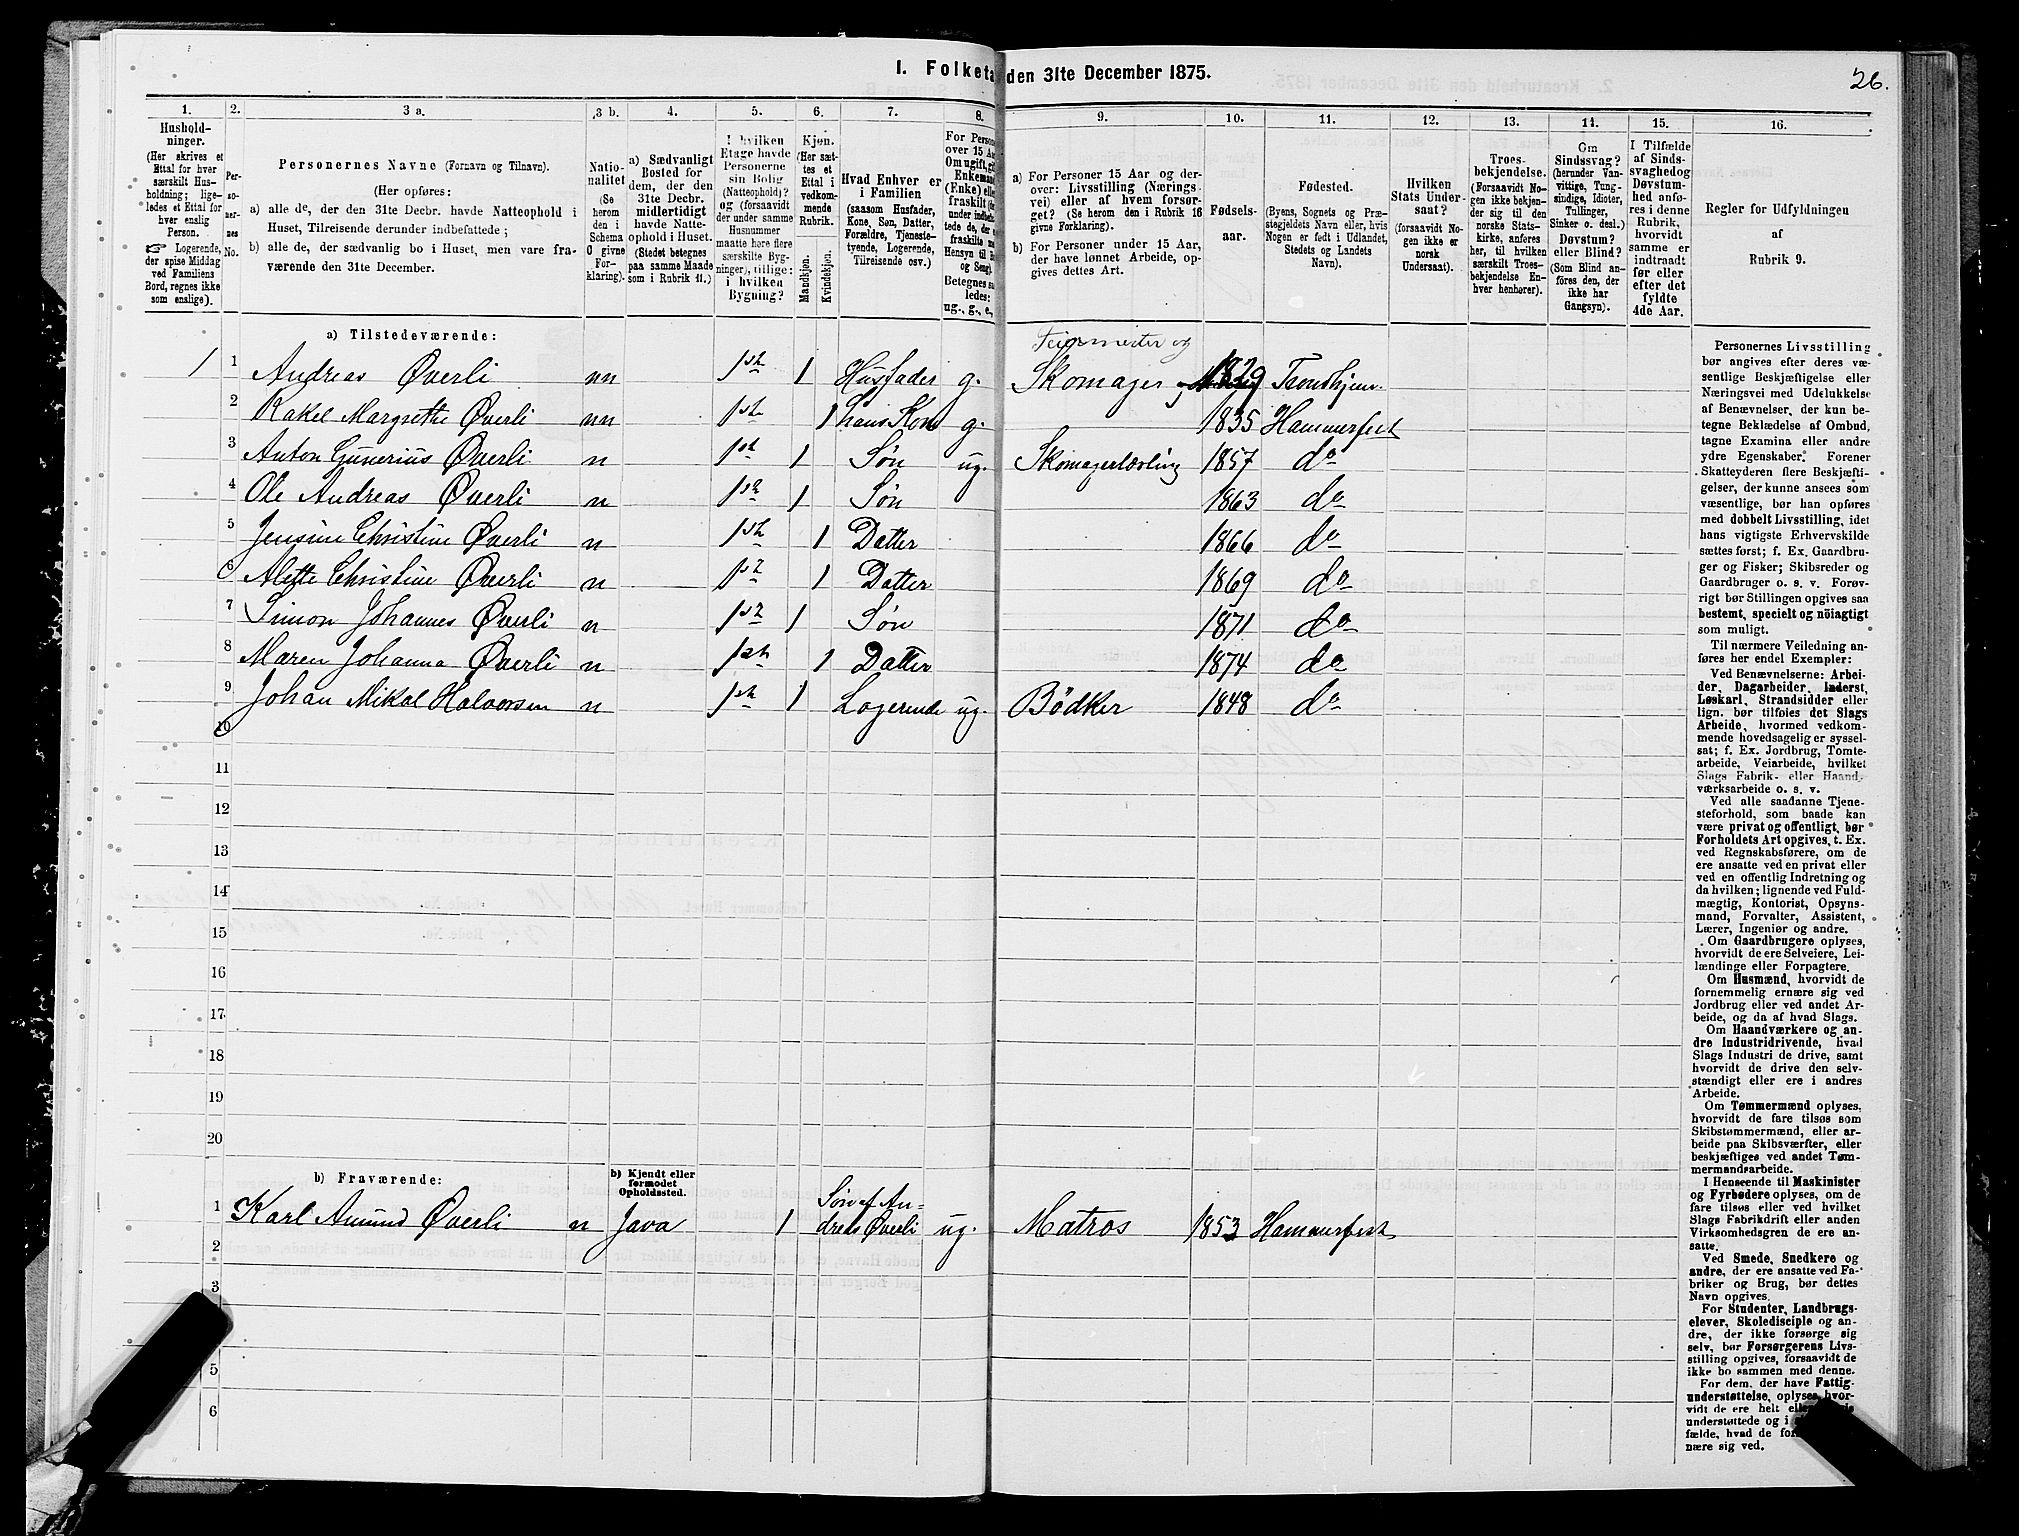 I. Folketa den 31te December 1875.
26.
1.
Hushold-
ninger.
(Her skrives et
Ettal for hver
særskilt Hus-
holdning; lige-
ledes et Ettal for
hver enslig
Person.
☞ Logerende,
der spise Middag
ved Familiens
Bord, regnes ikke
som enslige).
2.
Per-
so-
ner-
nes
No.
3 a.
Personernes Navne (Fornavn og Tilnavn).
(Her opføres:
a) alle de, der den 31te Decbr. havde Natteophold i
Huset, Tilreisende derunder indbefattede;
b) alle de, der sædvanlig bo i Huset, men vare fra-
værende den 31te December.
3 b.
Natio-
nalitet
(Se
herom
den i
Schema
0 givne
For-
klaring).
4.
a) Sædvanligt
Bosted for
dem, der den
31te Decbr.
midlertidigt
havde Natte-
ophold i Huset.
(Stedet betegnes
paa samme Maade
som i Rubrik 11.)
5.
I hvilken
Etage havde
Personerne
sin Bolig
(Natteophold)?
og (forsaavidt
der under samme
Husnummer
maatte høre flere
særskilte Byg-
ninger), tillige:
i hvilken
Bygning?
6.
Kjøn.
(Her sæt-
tes et
Ettal i
vedkom-
mende
Rubrik.
Mandkjøn.
Kvindekjøn.
7.
Hvad Enhver er
i Familien
(saasom Husfader,
Kone, Søn, Datter,
Forældre, Tjeneste-
tyende, Logerende,
Tilreisende osv.)
8.
For Person
over 15 Aa
Om ugift, gi
Enkeman
(Enke) elle
fraskilt
under indbe
tede de, der
fraskilte
Hensyn til B
og Seng
Betegnes sa
ledes:
ug., g., e.,
9.
a) For Personer 15 Aar og der-
over: Livsstilling (Nærings-
vei) eller af hvem forsør-
get? (Se herom den i Rubrik 16
givne Forklaring).
b) For Personer under 15 Aar,
der have lønnet Arbeide, op-
gives dettes Art.
10.
Fødsels-
aar.
11.
Fødested.
(Byens, Sognets og Præ-
stegjeldets Navn eller, hvis
Nogen er født i Udlandet,
Stedets og Landets
Navn).
12.
Hvilken
Stats Under-
saat?
(forsaavidt No-
gen ikke er
norsk
Undersaat).
13.
Troes-
bekjendelse.
(Forsaavidt No-
gen ikke bekjen-
der sig til den
norske Stats-
kirke, anføres
her, til hvilken
særskilt Troes-
bekjendelse En-
hver henhører).
14.
Om
Sindssvag?
(herunder Van-
vittige, Tung-
sindige, Idioter,
Tullinger,
Sinker o. desl.)
Døvstum?
eller Blind?
(Som Blind an-
føres den, der
ikke har
Gangsyn).
15.
I Tilfælde
af Sinds-
svaghed og
Døvstum-
hed anfø-
res i denne
Rubrik,
hvorvidt
samme er
indtraadt
før eller
efter det
fyldte
4de Aar.
16.
Regler for Udfyldningen
af
Rubrik 9.
a) Tilstedeværende:
Feiermester og
1 1 Andreas Øverli nn 1ste 1 Husfader g. Skomager 1829 Trondhjem
2 Rakel Margrethe Øverli nn 1ste 1 hans Kone g. 1835 Hammerfest
3 Anton Gunerius Øverli n 1ste 1 Søn ug. Skomagerlærling 1857 do
4 Ole Andreas Øverli n 1ste 1 Søn 1863 do
5 Jensine Christine Øverli n 1ste 1 Datter 1866 do
6 Alette Christine Øverli n 1ste 1 Datter 1869 do
7 Simon Johannes Øverli n 1ste 1 Søn 1871 do
8 Maren Johanna Øverli n 1ste 1 Datter 1874 do
9 Johan Mikal Halvorsen n 1ste 1 Logerende ug. Bödker 1848 do
10
11
12
13
14
15
16
17
18
19
20
b) Fraværende:
b) Kjendt eller
formodet
Opholdssted.
1 Karl Amund Øverli n Java 1 Søn af An-
dreas Øverli ug. Matros 1853 Hammerfest
2
3
5
6
Personernes Livsstilling
bør angives efter deres væ-
sentlige Beskjæftigelse eller
Næringsvei med Udelukkelse
af Benævnelser, der kun be-
tegne Beklædelse af Ombud,
tagne Examina eller andre
ydre Egenskaber. Forener
Skatteyderen flere Beskjæfti-
gelser, der kunne ansees som
væsentlige, bør han opføres
med dobbelt Livsstilling, idet
hans vigtigste Erhvervskilde
sættes først; f. Ex. Gaardbru-
ger og Fisker; Skibsreder og
Gaardbruger o. s. v. Forøv-
rigt bør Stillingen opgives saa
bestemt, specielt og nöiagtigt
som muligt.
Til nærmere Veiledning an-
føres her endel Exempler:
Ved Benævnelserne: Arbei-
der, Dagarbeider, Inderst,
Løskarl, Strandsidder eller
lign. bør tilføies det Slags
Arbeide, hvormed vedkom-
mende hovedsagelig er syssel-
sat; f. Ex. Jordbrug, Tomte-
arbeide, Veiarbeide, hvilket
Slags Fabrik- eller Haand-
værksarbeide o. s. v.
Ved alle saadanne Tjene-
steforhold, som baade kan
være privat og offentligt, bør
Forholdets Art opgives, t. Ex.
ved Regnskabsførere, om de
ere ansatte ved en privat eller
ved en offentlig Indretning og
da hvilken; lignende ved Fuld-
mægtig, Kontorist, Opsyns-
mand, Forvalter, Assistent,
Lærer, Ingeniør og andre.
Om Gaardbrugere oplyses,
hvorvidt de ere Selveiere, Lei-
lændinge eller Forpagtere.
Om Husmænd, hvorvidt de
fornemmelig ernære sig ved
Jordbrug eller ved andet Ar-
beide, og da af hvad Slags.
Om Haandværkere og an-
dre Industridrivende, hvad
Slags Industri de drive, samt
hvorvidt de drive den selv-
stændigt eller ere i andres
Arbeide.
Om Tømmermænd oplyses,
hvorvidt de fare tilsøs som
Skibstømmermænd, eller ar-
beide paa Skibsværfter, eller
beskjæftiges ved andet Tøm-
mermandsarbeide.
I Henseende til Maskinister
og Fyrbødere oplyses, om de
fare tilsøs eller ved hvilket
Slags Fabrikdrift eller anden
Virksomhedsgren de ere an-
satte.
Ved Smede, Snedkere og
andre, der ere ansatte ved Fa-
briker og Brug, bør dettes
Navn opgives.
For Studenter, Landbrugs-
elever, Skoledisciple og an-
dre, der ikke forsørge sig
selv, bør Forsørgerens Livs-
stilling opgives, forsaavidt de
ikke bo sammen med denne.
For dem, der have Fattig-
understøttelse, oplyses, hvor-
vidt de ere helt
understøttede og i
fælde, hvad de
nære sig ved.